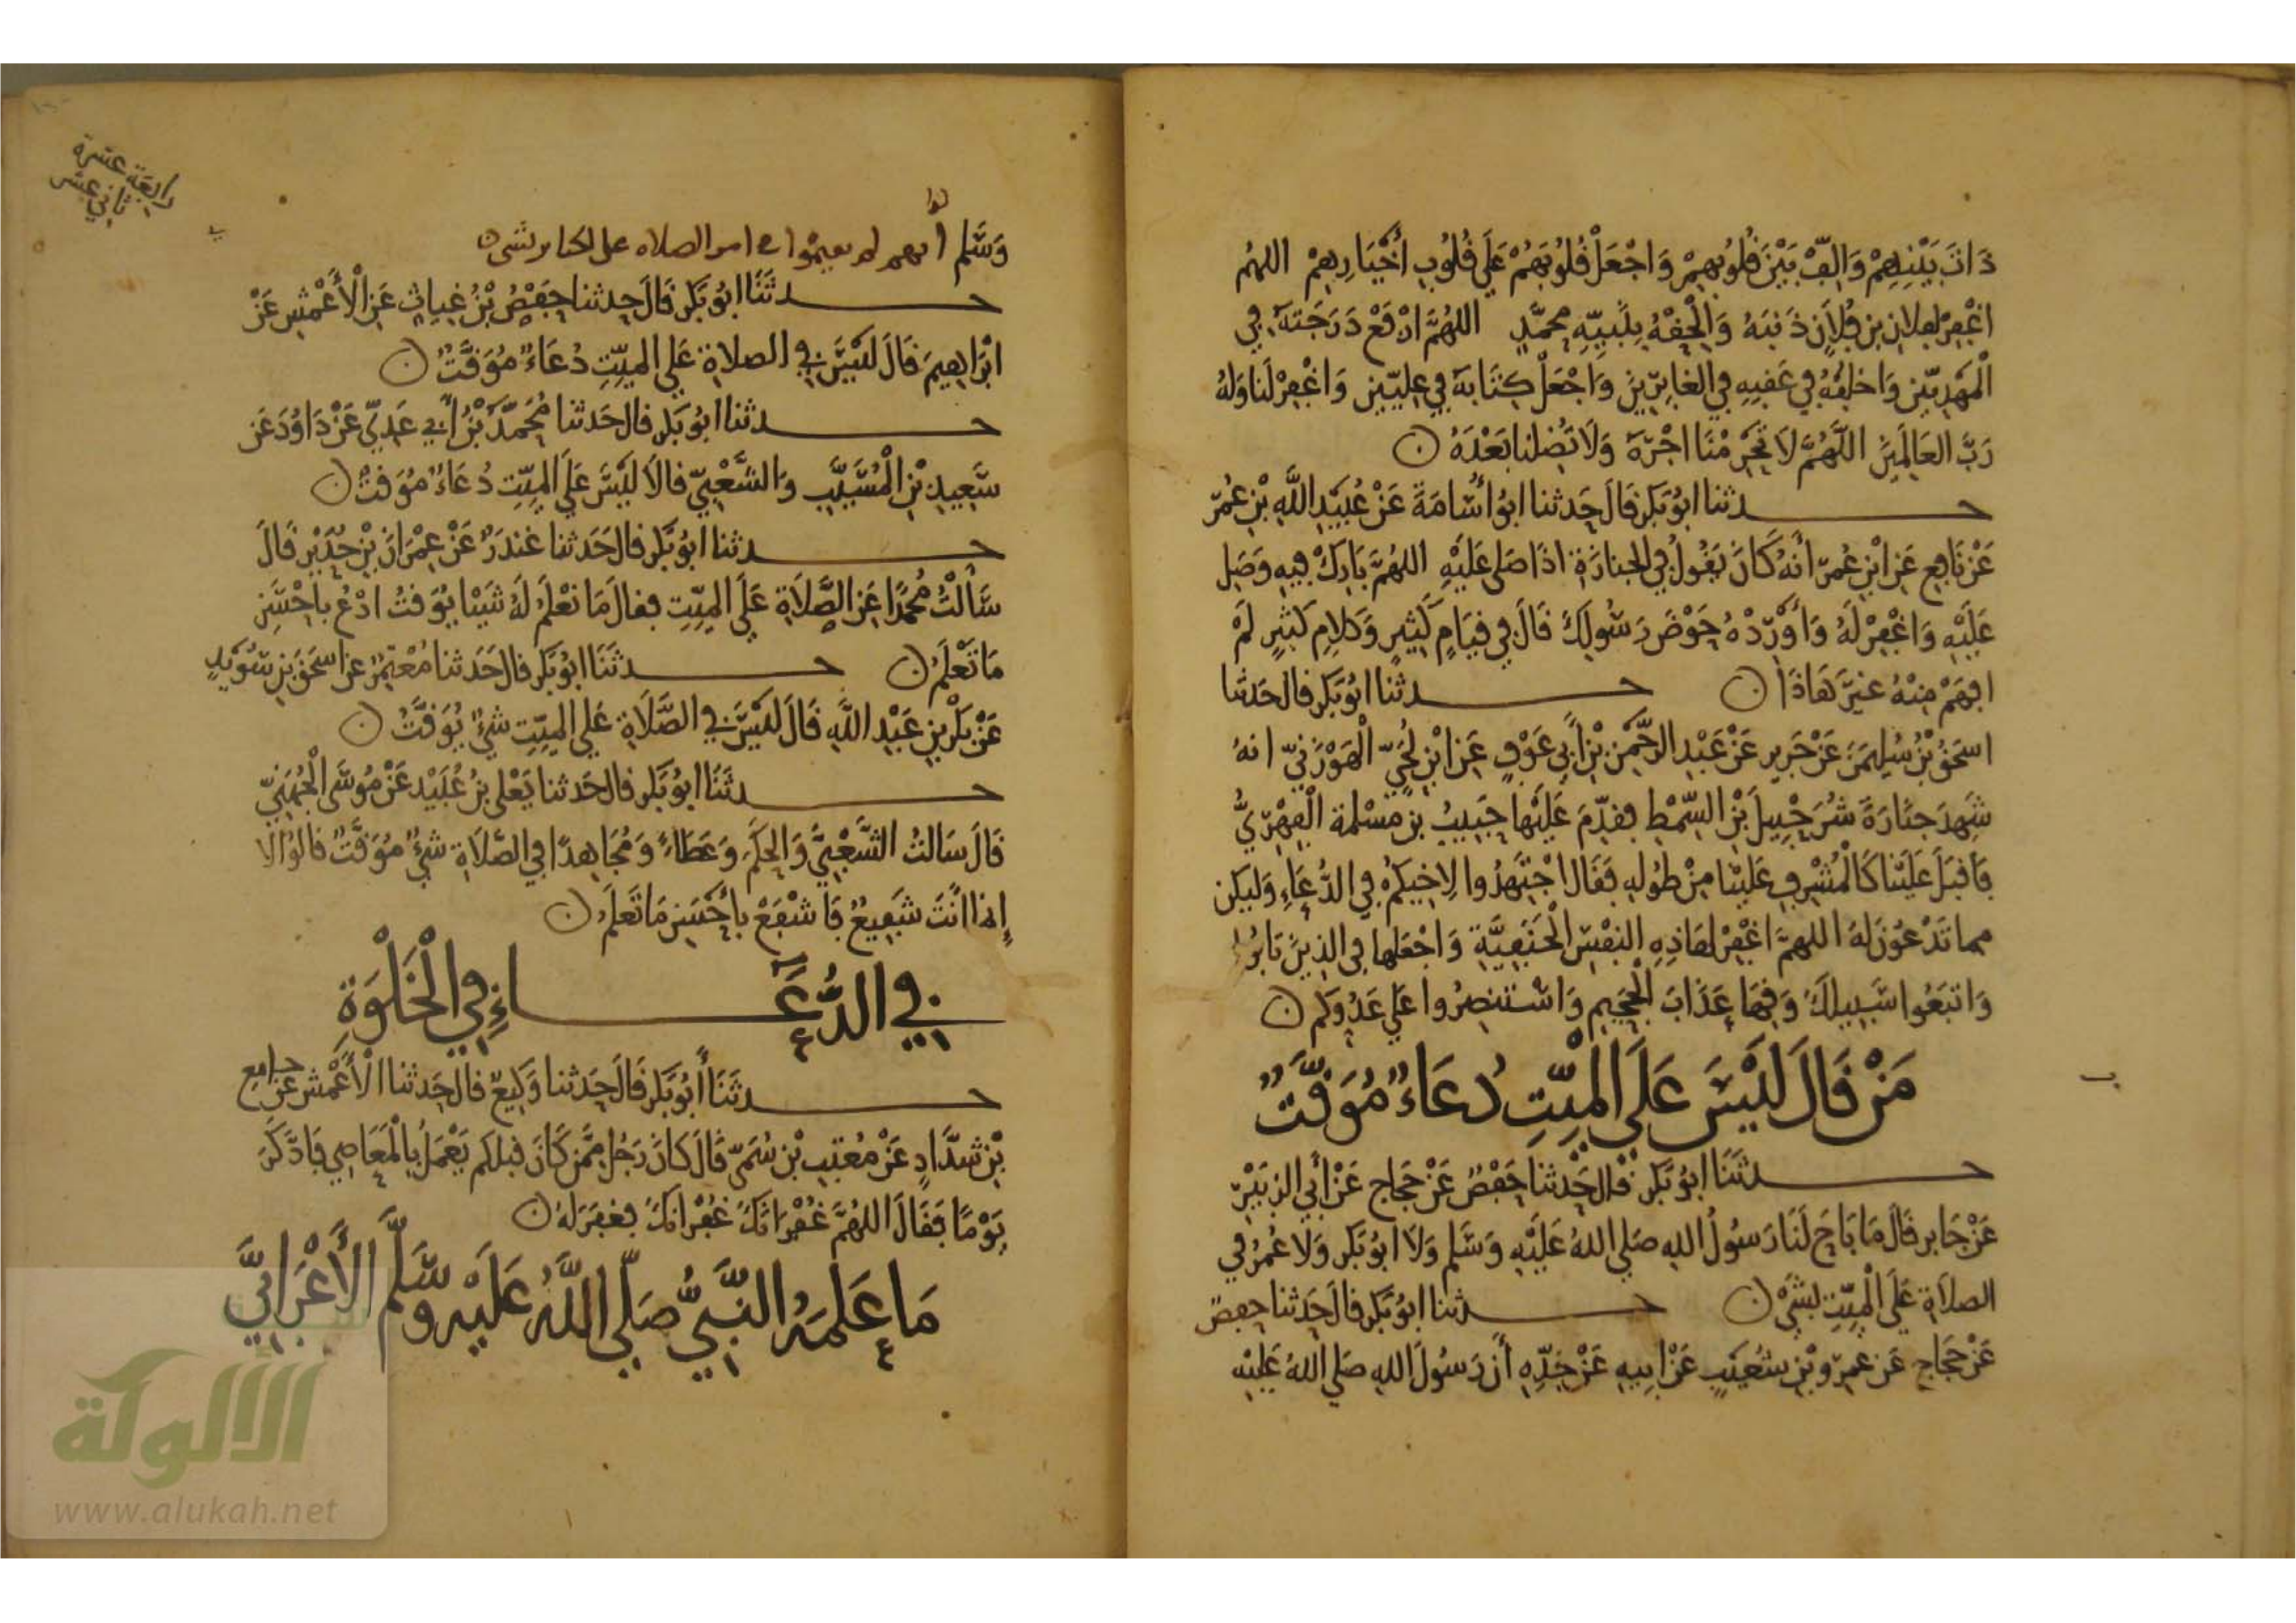 ذَاتَ بَيْنِهِمْ وَأَلِّفْ بَيْنَ قُلُوبِهِمْ وَاجْعَلْ قُلُوبَهُمْ عَلَى قُلُوبِ أَخْيَارِهِمْ اللهُم
اغْفِرْ لفلان بن فُلَانٍ ذَنبَهُ وَأَلْحِقْهُ بِنَبِيِّهِ محمَّدٍ اللهُمَّ ارْفَعْ دَرَجَتَهُ فِي
الْمَهْدِيّين وَاخلُفْهُ فِي عَقِبِهِ فِي الغَابِرِينَ وَاجْعَلْ كِتَابَهُ فِي عِليّين وَاغْفِرْ لَنَا وَلهُ
رَبَّ العَالَمِينَ اللَّهُمَّ لَا تَحْرِمْنَا أَجْرَهُ وَلَا تُضِلنا بَعْدَهُ ن
حدثنا ابُو بَكرٍ قَالَ حَدثنا ابُو أُسَامَةَ عَنْ عُبَيْدِ اللَّهِ بْنِ عُمَرَ
عَنْ نَافِعٍ عَنِ ابْنِ عُمَرَ أَنهُ كَانَ يَقُولُ فِي الجنازَةِ اذَا صَلى عَلَيْهِ اللهُمَّ بَارِكْ فِيهِ وَصَلِّ
عَلَيْهِ وَاغْفِرْ لَهُ وَأَوْرِدْهُ حَوْضَ رَسُولِكَ قَالَ فِي قِيَامٍ كَثِيرٍ وَكَلامٍ كَثِيرٍ لَمْ
افهَمْ مِنْهُ غيرَ هَاذَا ن حدثنا ابُو بَكرٍ قال حَدثنا
اسحَقُ بْنُ سُلِيمَنَ عَنْ حَرِيرٍ عَنْ عَبْدِ الرَّحْمنِ بْنِ أَبِي عَوْفٍ عَنِ ابْنِ لُحَيٍّ الْهَوْزَنِيّ انهُ
شهِدَ جنازَةَ شُرَحْبِيلَ بْنِ السِّمْطِ فقدّمَ عَلَيْها حَبِيبُ بن مَسْلمة الْفِهْرِيُّ
فَاقبَلَ عَلَيْنا كَالْمُشْرِفِ عَلَيْنا مِنْ طُولهِ فَقَالَ اجْتَهِدُوا لِاخِيكُمْ فِي الدُّعَاءِ وَليكن
مما تَدْعُونَ لهُ اللهمَّ اغْفِرْ لهَاذِهِ النفْسِ الْحَنفِيَّةِ وَاجْعَلها من الذِينَ تَابُوا
وَاتبَعُوا سَبِيلكَ وَقِهَا عَذَابَ الْجَحِيمِ وَاسْتنصِرُوا عَلَى عَدُوكم ن
مَنْ قَالَ لَيْسَ عَلَى الْمَيِّتِ دُعَاءٌ مُوَقَّتٌ
حدثَنَا ابُو بَكرٍ قال حَدثنا حَفْصٌ عَنْ حَجَاجٍ عَنْ أَبِي الزبَيْرِ
عَنْ جَابرٍ قَالَ مَا بَاحَ لَنَا رَسُولُ اللهِ صَلى اللهُ عَلَيْهِ وَسَلم وَلَا ابُو بَكر وَلَا عُمَرُ فِي
الصلاةِ عَلَى الْمَيِّتِ بشَيْءٍ ن حدثنا ابُو بَكرٍ قالَ حَدثنا حفص
عَنْ حَجَاجٍ عَن عَمْرو بْنِ شُعَيْبٍ عَنْ ابِيهِ عَنْ جَدِّهِ أَنَّ رَسُولَ اللهِ صَلى اللهُ عَلَيْهِ
رابعة عشرة
ثاني عشر
وَسَلم أنهم لم يقوموا في امر الصلاه على الجنازه بشى ن
حدثَنَا ابُو بَكرٍ قَالَ حدثنا حَفْصُ بْنُ غِياثٍ عَنِ الْأَعْمَشِ عَنْ
ابْرَاهِيمَ قَالَ لَيْسَ فِي الصلاةِ عَلَى الميِّتِ دُعَاءٌ مُوَقَّتٌ ن
حدثنا ابُو بَكرٍ قال حَدثنا مُحَمَّدُ بْنُ أَبِي عَدِيٍّ عَنْ دَاوُدَ عَن
سَعِيدِ بْنِ الْمُسَيَّبِ وَالشَّعْبِيِّ قالَا لَيْسَ عَلَى الميِّتِ دُعَاءٌ مُوَقتٌ ن
حدثنا ابُو بَكرٍ قال حَدثنا غندَرٌ عَنْ عِمْرَانَ بْنِ حُدَيْرٍ قَالَ
سَأَلْتُ مُحَمدًا عَنِ الصَّلَاةِ عَلَى الميِّتِ فقالَ مَا نَعْلَمُ لَهُ شَيْئا يُوَقتُ ادْعُ بِأَحْسَنِ
مَا تَعْلَمُ ن حدثَنَا ابُو بَكرٍ قال حَدثنا مُعْتمِرٌ عن اسحَقَ بنِ سُوَيْدٍ
عَنْ بَكْرِ بْنِ عَبْدِ اللَّهِ قَالَ لَيْسَ فِي الصَّلَاةِ عَلَى الميِّت شيْءٌ يُوَقَّتُ ن
حدثَنَا ابُو بَكرٍ قال حَدثنا يَعْلى بنُ عُبَيْد عَنْ مُوسَى الْجُهَنِيّ
قَالَ سَالتُ الشَّعْبِيَّ وَالحَكَمَ وَعَطَاءً وَمُجَاهِدًا فِي الصَّلَاةِ شيْءٌ مُوَقَّتٌ قالُوا لا
إنما انْتَ شَفِيعٌ فَاشْفَعْ بِأَحْسَنِ مَا تَعلَمُ ن
فِي الدُّعَاءِ فِي الْخَلْوَةِ
حدثَنَا أَبُو بَكرٍ قَالَ حَدثنا وَكِيعٌ قال حَدثنا الْأَعْمَش عَنْ جامع
بْنِ شدَّادٍ عَنْ مُعْتِبِ بْنِ سُمَيّ قَالَ كانَ رَجُل مِمَّن كَانَ قبلكم يَعْمَلُ بِالْمَعَاصِي فَادَّكَرَ
يَوْمًا فَقَالَ اللهُمَّ غُفْرَانَكَ غُفْرَانَكَ فغفِرَ لهُ ن
مَا عَلمهُ النَّبِيُّ صَلّى اللَّهُ عَلَيْهِ وسَلَّم الأَعْرَابِيَّ
الألوكة
www.alukah.net